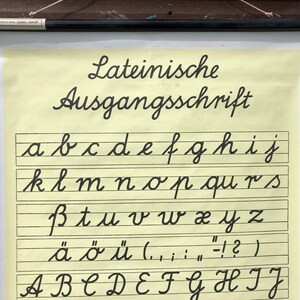 Lateinische
Ausgangsschrift
a b c d e f g h i j
k l m n o p qu r s
ß t u v w x y z
ä ö ü ( . , ; : „ “ - ! ? )
A B C D E F G H I J